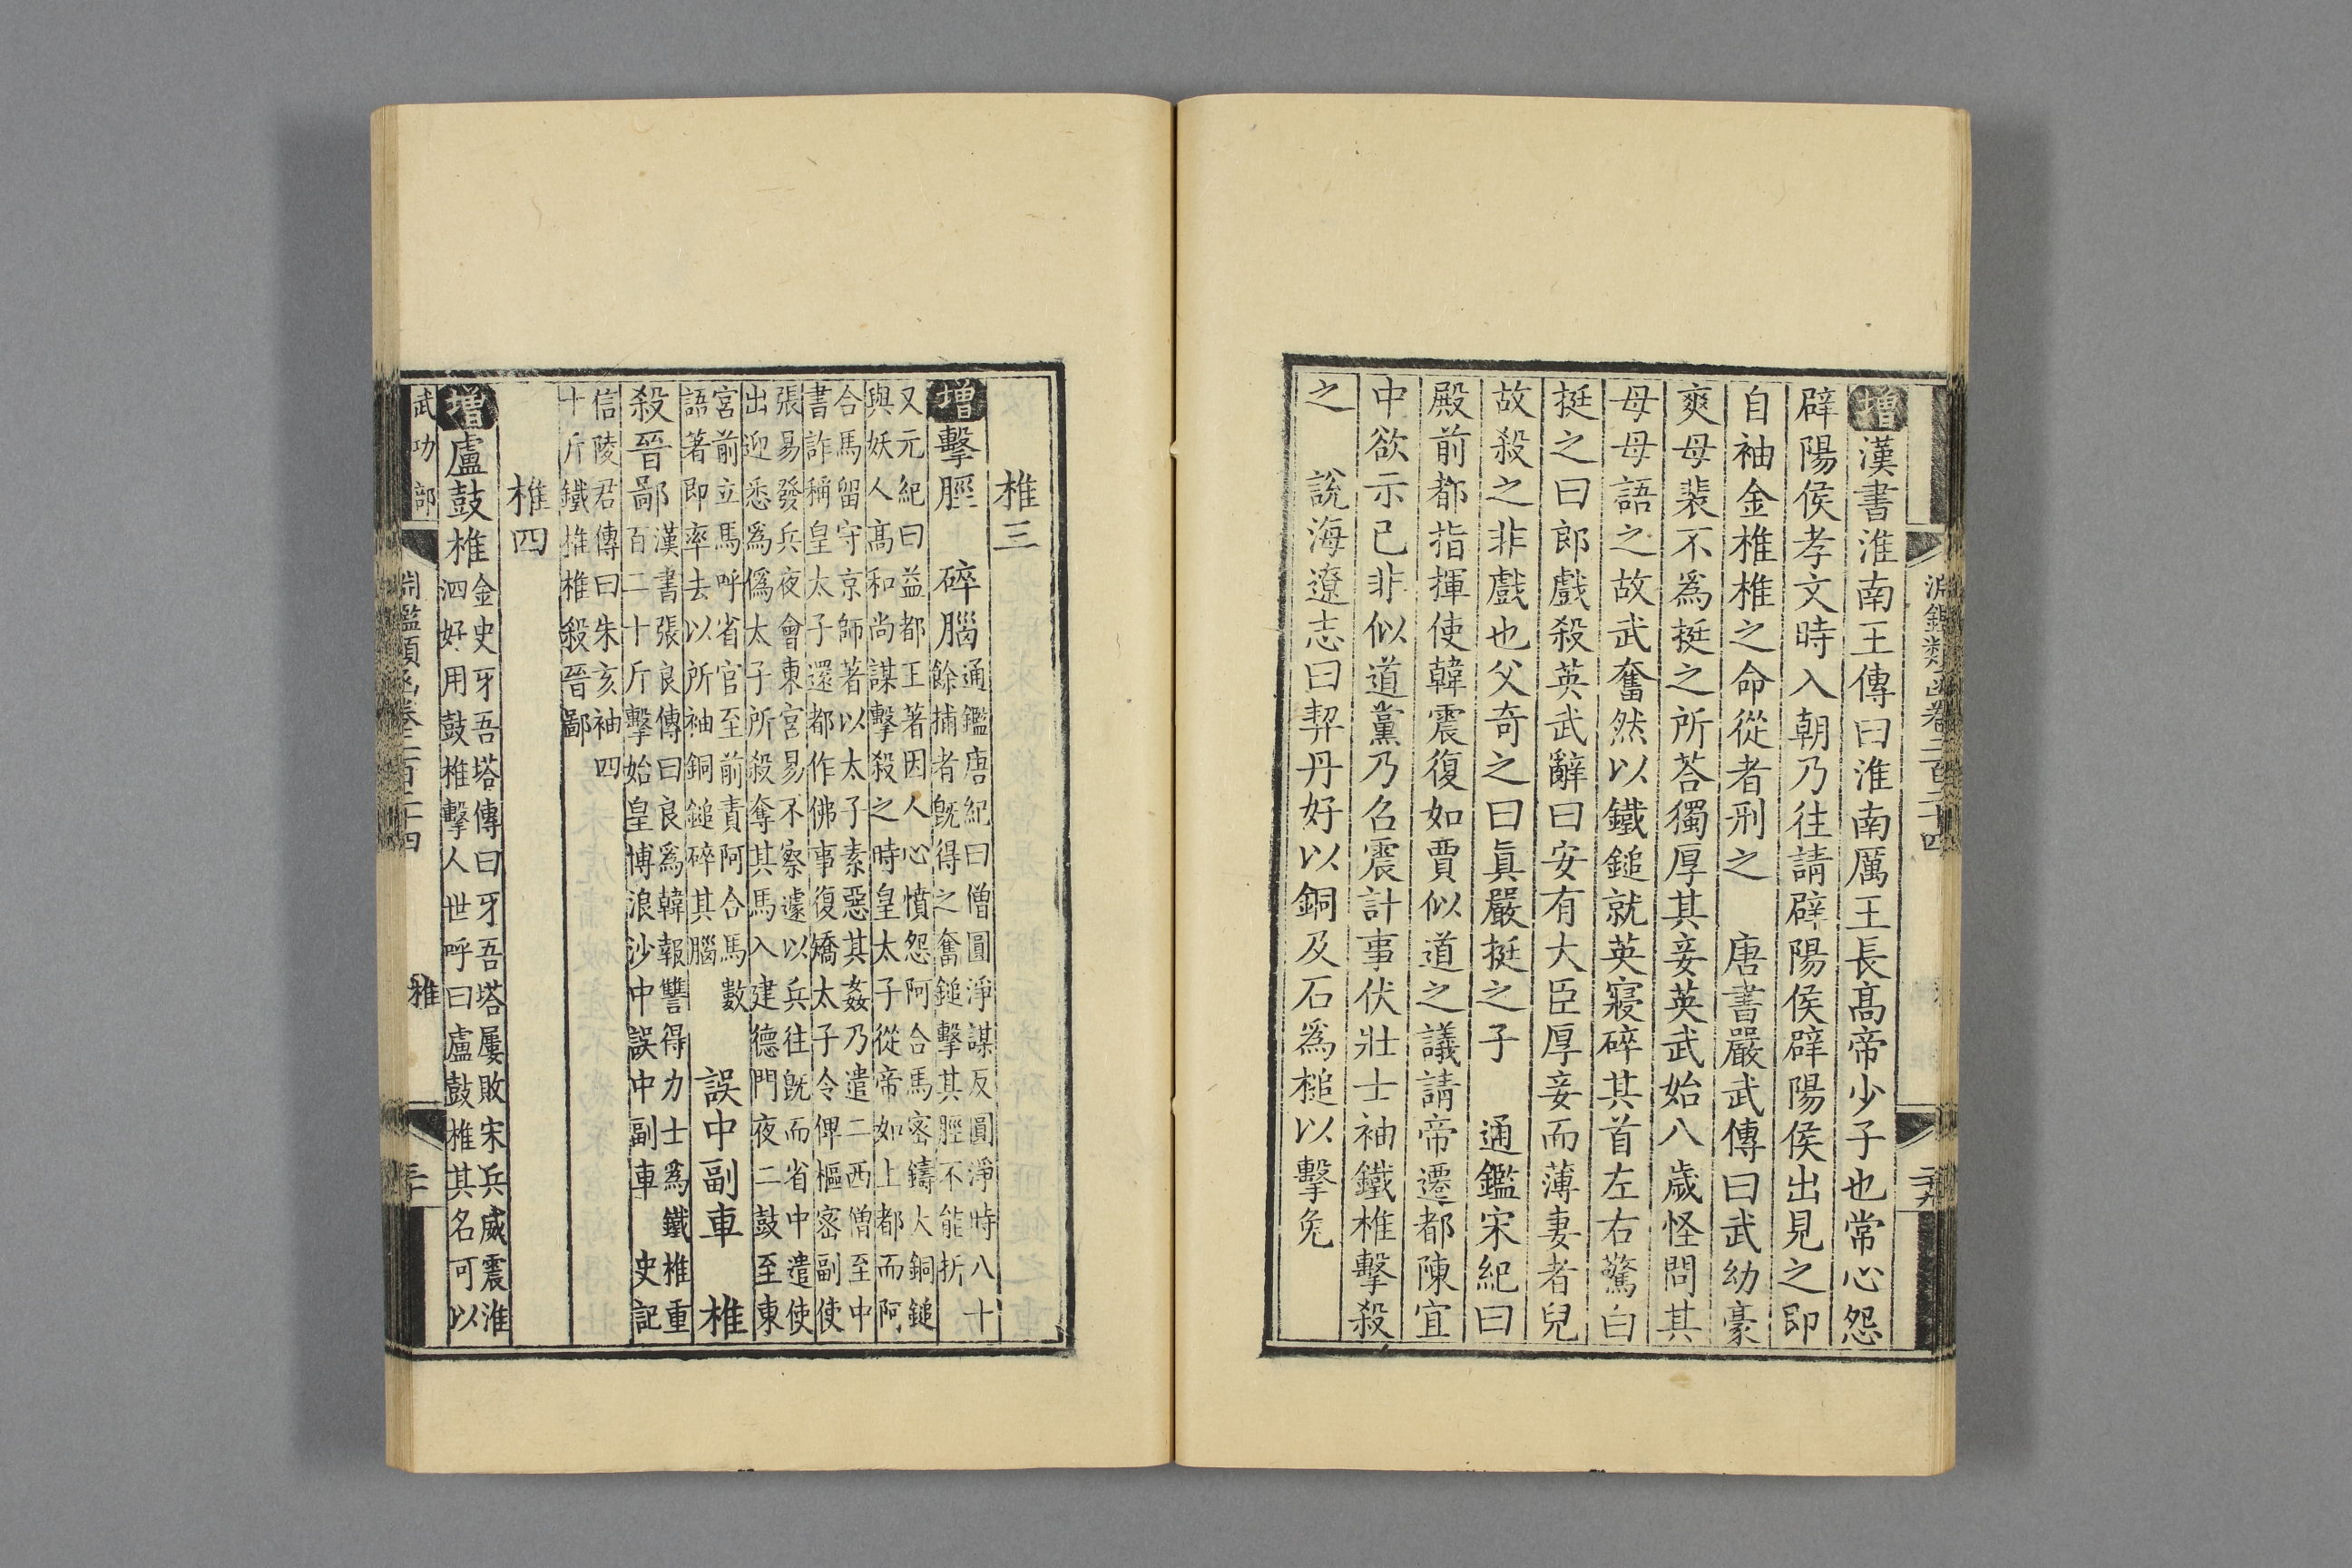 增漢書淮南王傳曰淮南厲王長髙帝少子也常心怨
辟陽侯孝文時入朝乃往請辟陽侯辟陽侯出見之即
自袖金椎椎之命從者刑之　唐書嚴武傳曰武幼豪
爽母裴不爲挺之所荅獨厚其妾英武始八歳怪問其
母母語之故武奮然以鐵鎚就英寢碎其首左右驚白
挺之曰郎戲殺英武辭曰安有大臣厚妾而薄妻者兒
故殺之非戲也父奇之曰眞嚴挺之子　通鑑宋紀曰
殿前都指揮使韓震復如賈似道之議請帝遷都陳宜
中欲示已非似道黨乃召震計事伏壯士袖鐵椎擊殺
之　說海遼志曰契丹好以銅及石爲槌以擊兔
椎三
增擊脛　碎腦
通鑑唐紀曰僧圓淨謀反圓淨時八十
餘捕者旣得之奮鎚擊其脛不能折
又元紀曰益都王著因人心憤怨阿合馬宻鑄大銅鎚
與妖人髙和尚謀擊殺之時皇太子從帝如上都而阿
合馬留守京師著以太子素惡其姦乃遣二西僧至中
書詐稱皇太子還都作佛事復矯太子令俾樞宻副使
張易發兵夜會東宮易不察遽以兵往旣而省中遣使
出迎悉爲僞太子所殺奪其馬入建德門夜二鼓至東
宮前立馬呼省官至前責阿合馬數
語著即率去以所袖銅鎚碎其腦
誤中副車　椎
殺晉鄙
漢書張良傳曰良爲韓報讐得力士爲鐵椎重
百二十斤擊始皇博浪沙中誤中副車　史記
信陵君傳曰朱亥袖四
十斤鐵椎椎殺晉鄙
椎四
增盧鼓椎
金史牙吾塔傳曰牙吾塔屢敗宋兵威震淮
泗好用鼓椎擊人世呼曰盧鼓椎其名可以
武功部
淵鑑類函卷二百二十四
椎